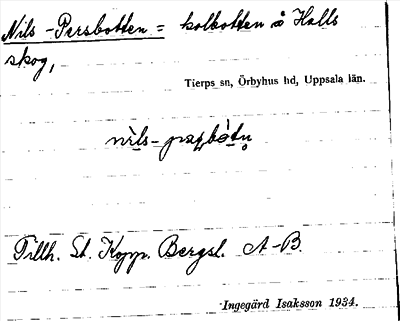 Nils-Persbotten = kolbotten å Halls
skog,
Tierps sn, Örbyhus hd, Uppsala län.
Tillh. St. Kopp. Bergsl. A-B.
Ingegärd Isaksson 1934.